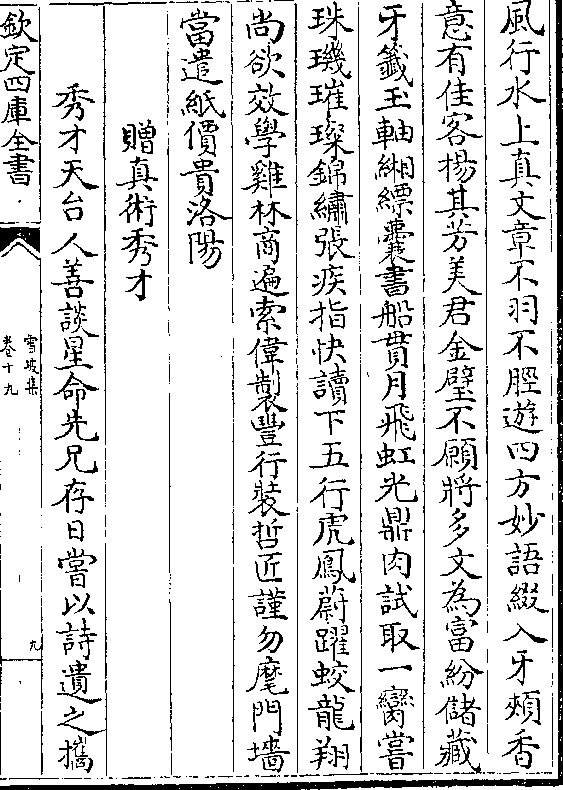 風行水上真文章不羽不脛遊四方妙語綴入牙頰香
意有佳客揚其芳美君金璧不願將多文為富紛儲藏
牙籤玉軸緗縹囊書船貫月飛虹光鼎肉試取一臠嘗
珠璣璀璨錦繡張疾指快讀下五行虎鳳蔚躍蛟龍翔
尚欲效學雞林商遍索偉製豐行裝哲匠謹勿麾門墻
當遣紙價貴洛陽
贈真術秀才
秀才天台人善談星命先兄存日嘗以詩遺之攜
欽定四庫全書
雪坡集
卷十九
九